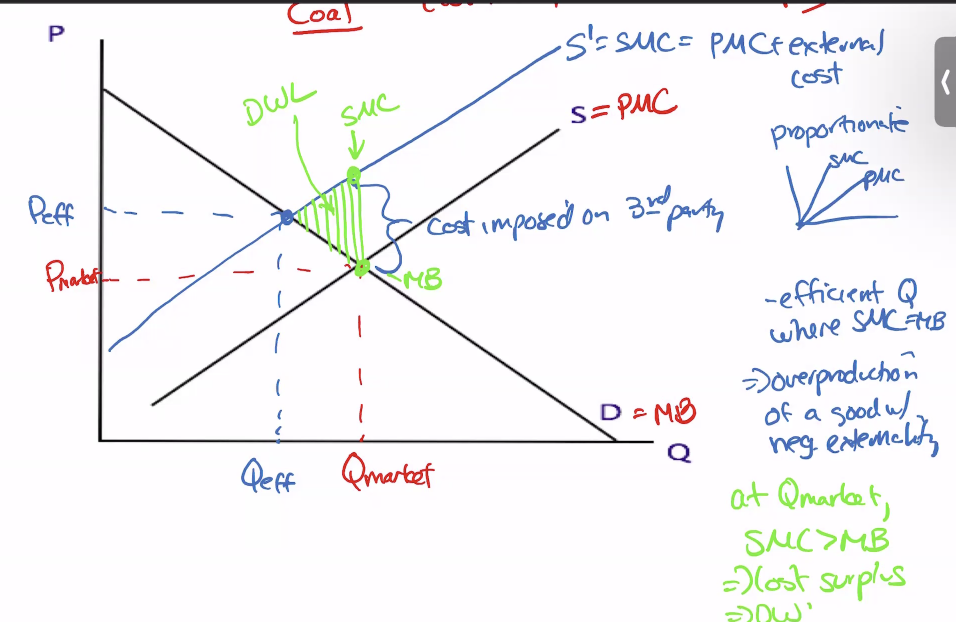 Coal
P
S' = SMC = PMC + external
cost
DWL
SMC
S = PMC
proportionate
SMC
PMC
Peff
cost imposed on 3rd party
Pmarket
MB
-efficient Q
where SMC=MB
=> overproduction
of a good w/
neg externality
D = MB
Q
Qeff
Qmarket
at Qmarket,
SMC>MB
=> lost surplus